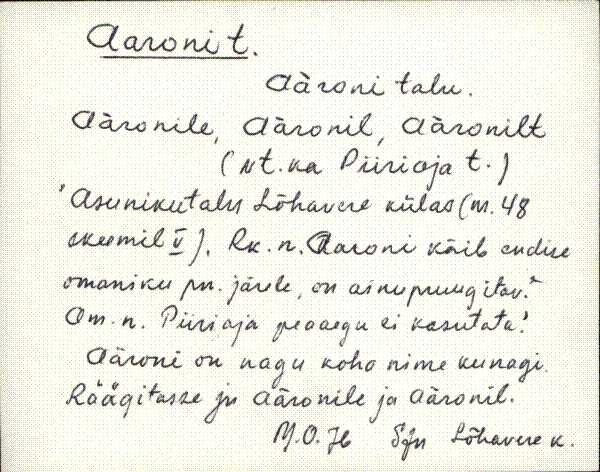 Aaroni t.
Aàroni talu.
Aàronile, Aàronil, Aàronilt
(vt. ka Piirioja t.)
'Asunikutalu Lõhavere külas (m. 48
skeemil V). Rk. n. Aaroni käib endise
omaniku pn. järele, on ainupruugitav.
Am. n. Piirioja peaaegu ei kasutata.'
Aàroni on nagu koha nime kunagi.
Räägitasse ju Aàronile ja Aàronil.
M.O. 76 Sjn Lõhavere k.